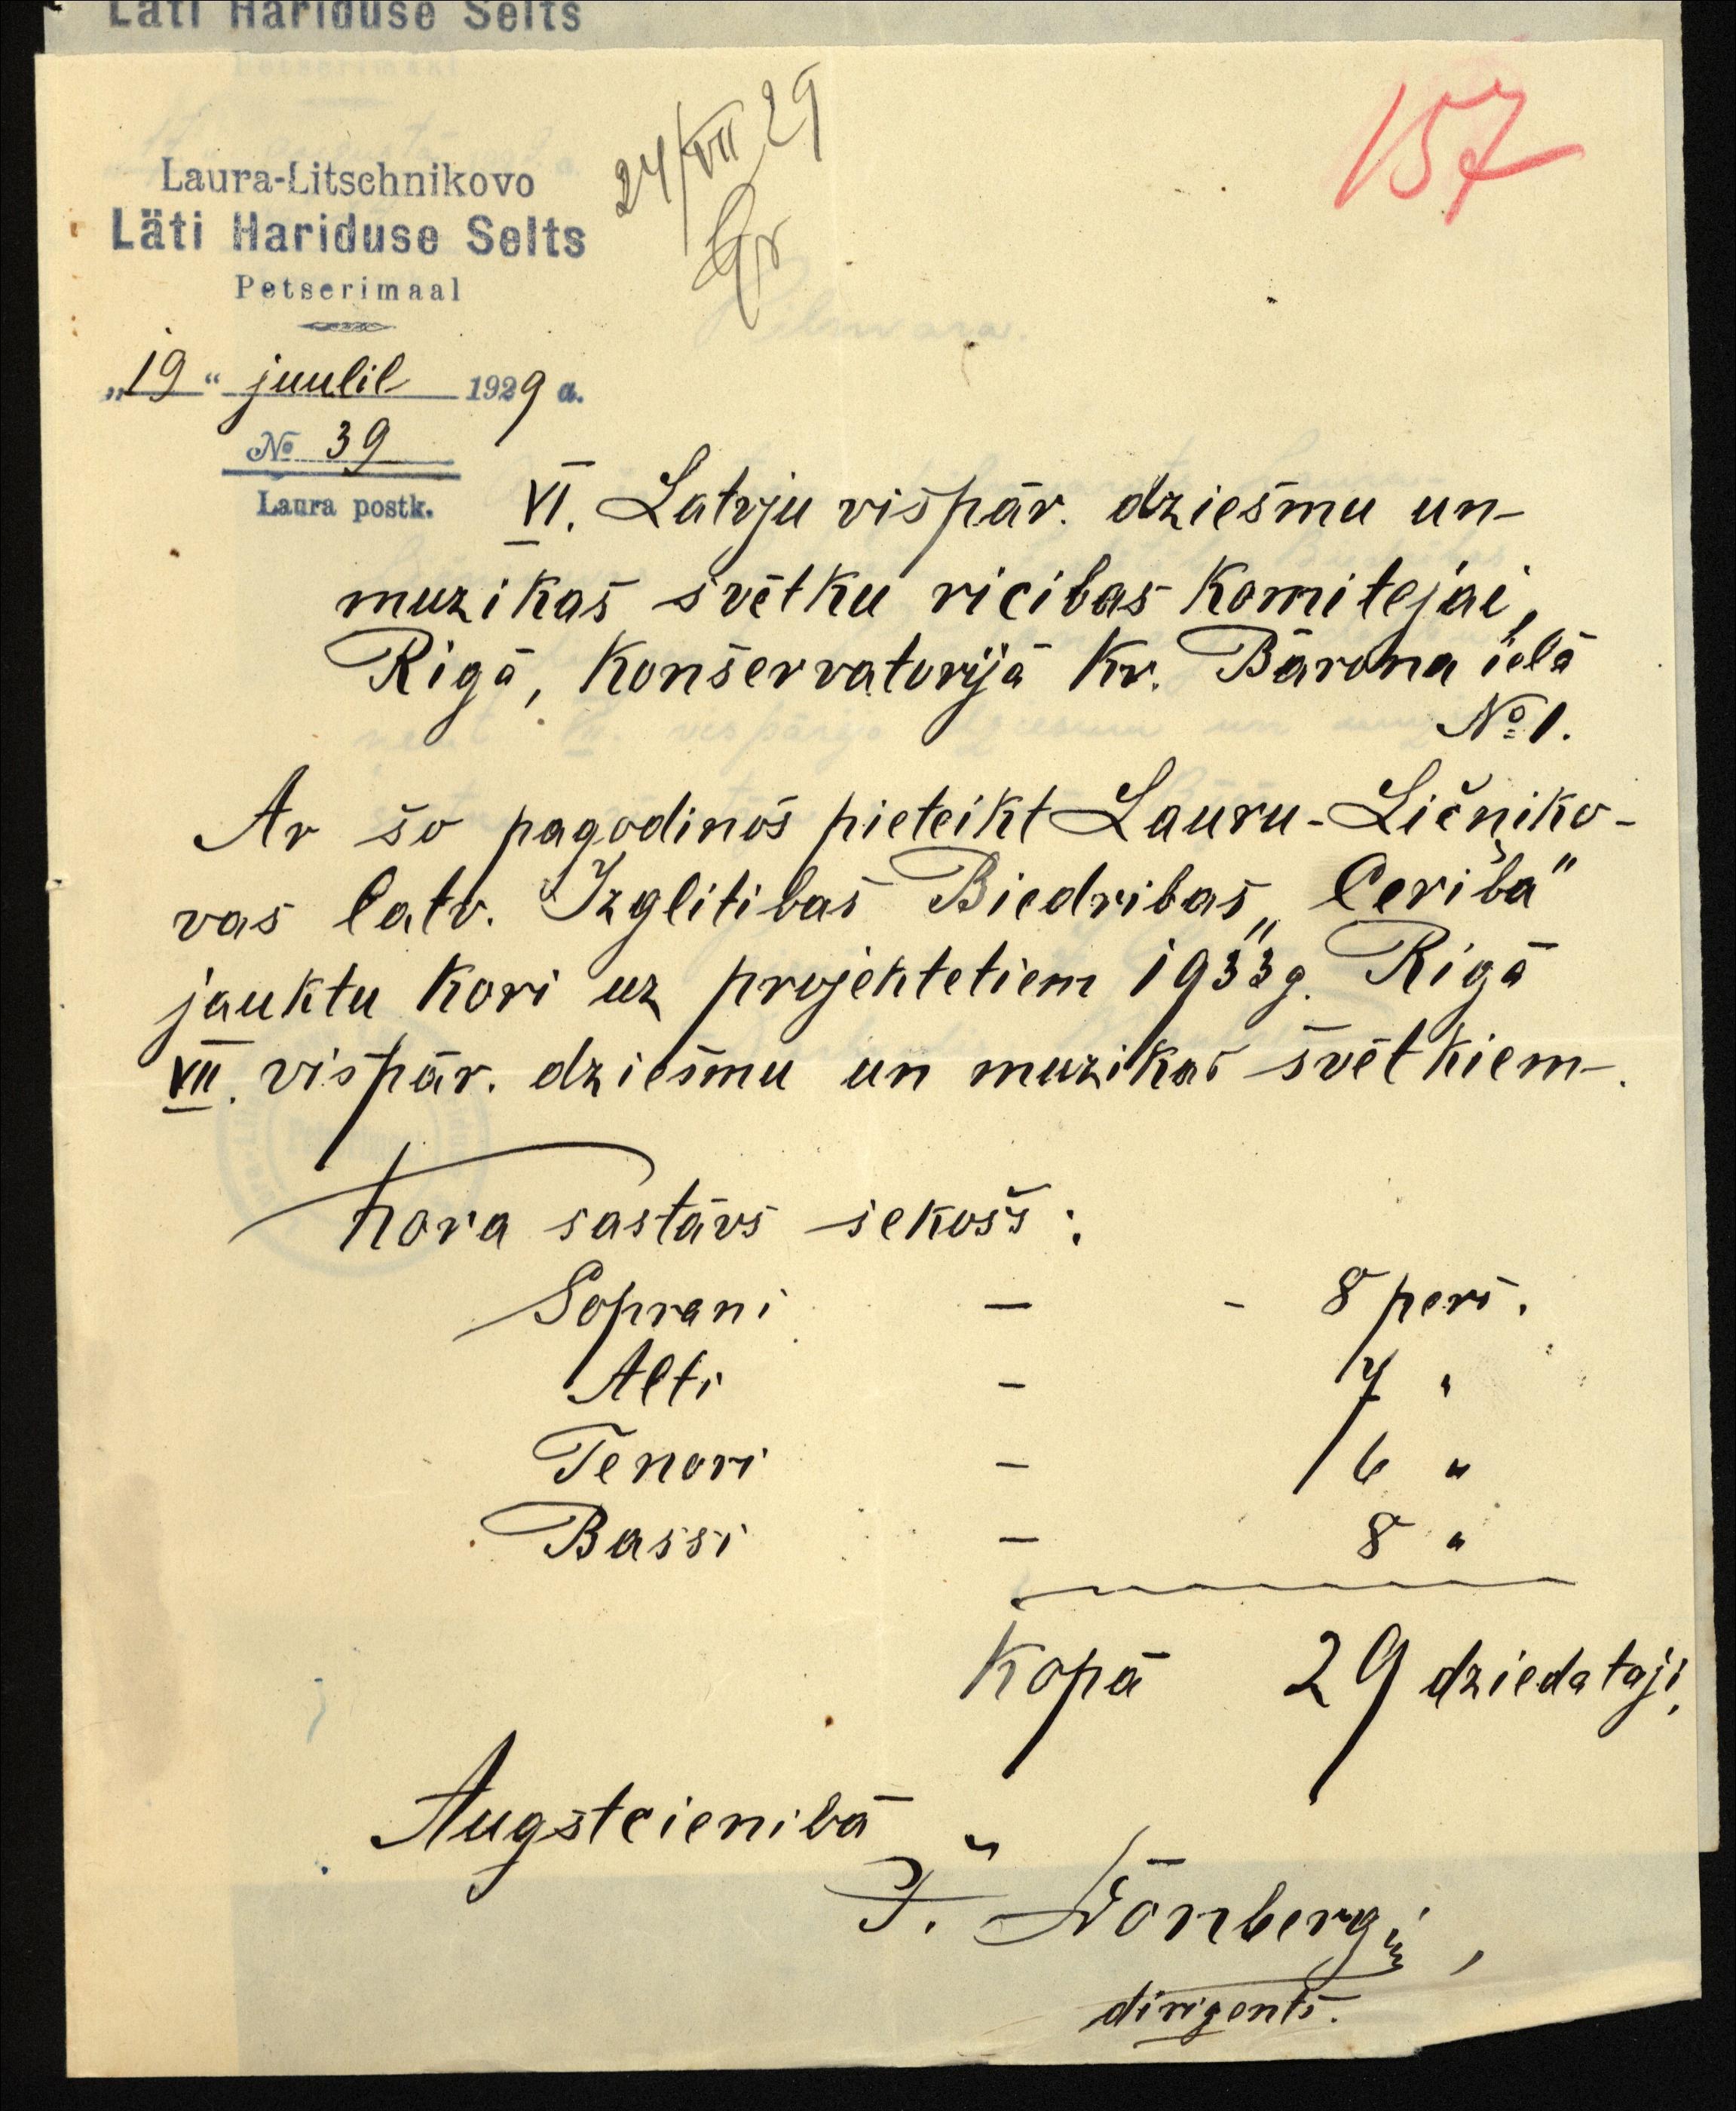 Läti Hariduse Selts
157
24/VII 29
Laura-Litschnikovo
Läti Hariduse Selts
Petserimaal
„19“ juulil 1929 a.
№ 39
Laura postk.
VI. Latvju vispār. dziesmu un
muzikas svētku ricibas Komitejai,
Rigā, Konservatorijā Kr. Bārona ielā
№ 1.
Ar šo pagodinos pieteikt Lauru-Ličņiko-
vas latv. Izglitibas Biedribas „Ceriba"
jauktu Kori uz projektetiem 1933g. Rigā
VII. vispār. dziesmu un muzikas svētkiem.
Kora sastāvs sekošs:
Soprani - - 8 pers.
Alti - 7 "
Tenori - 6 "
Bassi - 8 "
Kopā 29 dziedataji.
Augstcienibā
dirigents.